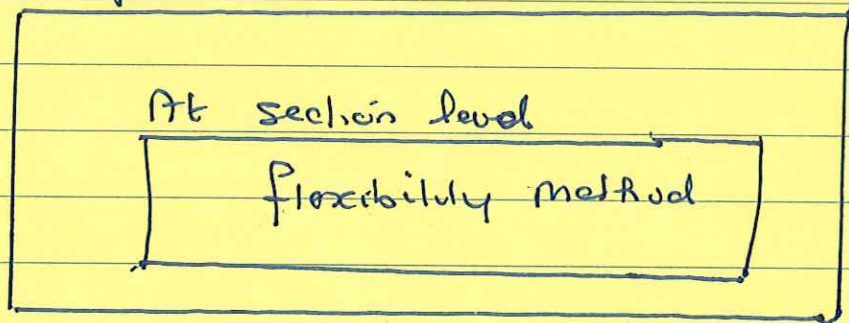 At section level
flexibility method